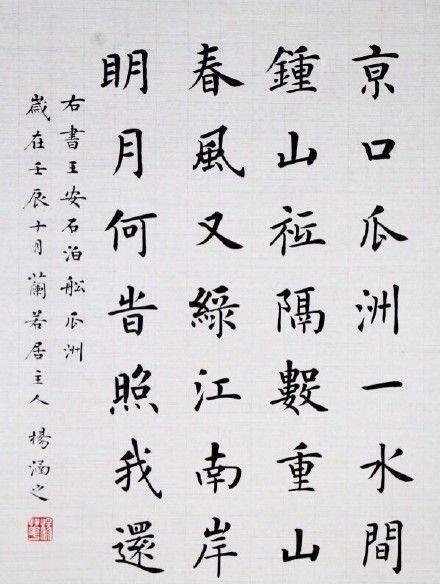 京口瓜洲一水間
鍾山秪隔數重山
春風又綠江南岸
明月何旹照我還
右書王安石泊船瓜洲
歲在壬辰十月蘭若居主人楊涵之